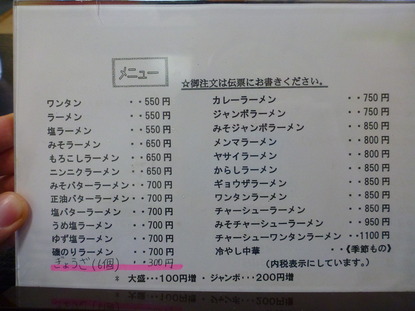 メニュー
☆御注文は伝票にお書きください。
ワンタン ・・550円
ラーメン ・・550円
塩ラーメン ・・550円
みそラーメン ・・650円
もろこしラーメン ・・650円
ニンニクラーメン ・・650円
みそバターラーメン ・・700円
正油バターラーメン ・・700円
塩バターラーメン ・・700円
うめ塩ラーメン ・・700円
ゆず塩ラーメン ・・700円
磯のりラーメン ・・700円
ぎょうざ(6個) ・・300円
カレーラーメン ・・750円
ジャンボラーメン ・・750円
みそジャンボラーメン ・・850円
メンマラーメン ・・800円
ヤサイラーメン ・・800円
からしラーメン ・・850円
ギョウザラーメン ・・850円
ワンタンラーメン ・・850円
チャーシューラーメン ・・850円
みそチャーシューラーメン ・・950円
チャーシューワンタンラーメン ・・1100円
冷やし中華 ・・《季節もの》
(内税表示にしています。)
* 大盛・・100円増 ・ ジャンボ・・200円増